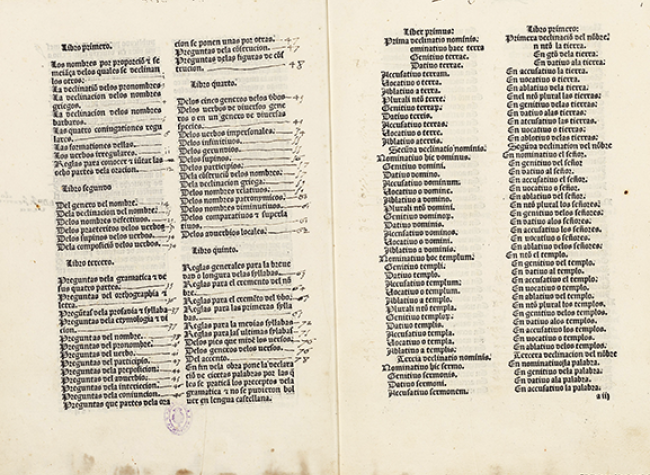 Libro primero.
Los nombres por proporció τ se
mejãça delos quales se declinan
los otros.
La declinació delos pronombres
La declinacion delos nombres
griegos.
La declinacion delos nombres
barbaros.
Las quatro coniugationes regu
lares.
Las formationes dellas.
Los verbos irregulares.
Reglas para conocer τ iũtar las
ocho partes dela oracion.
Libro segundo
Del genero del nombre.
Dela declinacion del nombre.
Delos nombres defectivos.
Delos praeteritos delos verbos
Delos supinos delos verbos.
Dela composició delos verbos.
Libro tercero.
Preguntas dela gramatica τ de
sus quatro partes.
Preguntas del orthographia τ
letra.
Pregũtas dela prosodia τ syllaba
Preguntas dela etymologia τ di
cion.
Preguntas del nombre.
Preguntas del pronombre.
Preguntas del verbo.
Preguntas del participio.
Preguntas dela preposicion.
Preguntas del adverbio.
Preguntas dela interiecion.
Preguntas dela coniuncion.
Preguntas que partes dela ora
cion se ponen unas por otras. 47
Preguntas dela cõstrucion. 47
Preguntas delas figuras de cõs
trucion. 48
Libro quarto.
Delos cinco generos delos vbos
Delos verbos de diversos gene
ros o en un genero de diversas
species.
Delos verbos impersonales.
Delos infinitivos.
Delos gerundios.
Delos supinos.
Delos participios.
Dela cõstrució delos nombres.
Dela declinacion griega.
Delos nombres relativos.
Delos nombres patronymicos.
Delos nombres diminutivos.
Delos comparativos τ superla
tivos.
Delos adverbios locales.
Libro quinto.
Reglas generales para la breue
dad o longura delas syllabas
Reglas para el cremento del nõ
bre.
Reglas para el cremẽto del vbo.
Reglas para las primeras sylla
bas.
Reglas para las medias syllabas
Reglas para las ultimas syllabas
Delos pies que midẽ los versos.
Delos generos delos versos.
Del accento. 78
En fin dela obra pone la declara
ció de ciertas palabras por las q̃
les se praticã los preceptos dela
gramatica τ no se pudieron bol
ver en lengua castellana.
Liber primus:
Prima declinatio nominis.
ominativo haec terra
Genitivo terrae.
Dativo terrae.
Accusativo terram.
Uocativo o terra.
Ablativo a terra.
Plurali nõ terre.
Genitivo terraꝝ.
Dativo terris.
Accusativo terras.
Uocativo o terre.
Ablativo a terris.
Secũda declinatio nominis.
Nominativo hic dominus.
Genitivo domini.
Dativo domino.
Accusativo dominum.
Uocativo o domine.
Ablativo a domino.
Plurali nõ domini.
Genitivo dominoꝝ.
Dativo dominis.
Accusativo dominos.
Uocativo o domini.
Ablativo a dominis.
Nominativo hoc templum.
Genitivo templi.
Dativo templo.
Accusativo templum.
Uocativo o templum.
Ablativo a templo.
Plurali nõ templa.
Genitivo temploꝝ.
Dativo templis.
Accusativo templa.
Uocativo o templa.
Ablativo a templis.
Tercia declinatio nominis.
Nominativo hic sermo.
Genitivo sermonis.
Dativo sermoni.
Accusativo sermonem.
Libro primero:
Primera declinació del nõbre.
n ntõ la tierra.
En gtõ dela tierra.
En dativo ala tierra.
En accusativo la tierra.
En vocativo o tierra.
En ablativo dela tierra.
Enel ntõ plural las tierras:
En genitivo delas tierras:
En dativo alas tierras:
En accusativo las tierras:
En vocativo o tierras:
En ablativo delas tierras.
Segũda declinacion del nõbre
En nominativo el señor.
En genitivo del señor
En dativo al señor.
En accusativo el señor.
En vocativo o señor.
En ablativo del señor.
En ntõ plural los señores.
En genitivo delos señores.
En dativo alos señores.
En accusativo los señores.
En vocativo o señores.
En ablativo delos señores.
En ntõ el templo.
En genitivo del templo.
En dativo al templo.
En accusativo el templo.
En vocativo o templo.
En ablativo del templo.
En ntõ plural los templos.
En genitivo delos templos.
En dativo alos templos.
En accusativo los templos.
En vocativo o templos.
En ablativo delos templos.
Tercera declinacion del nõbre
En nominativo la palabra.
En genitivo dela palabra.
En dativo ala palabra.
En accusativo la palabra.
a iij